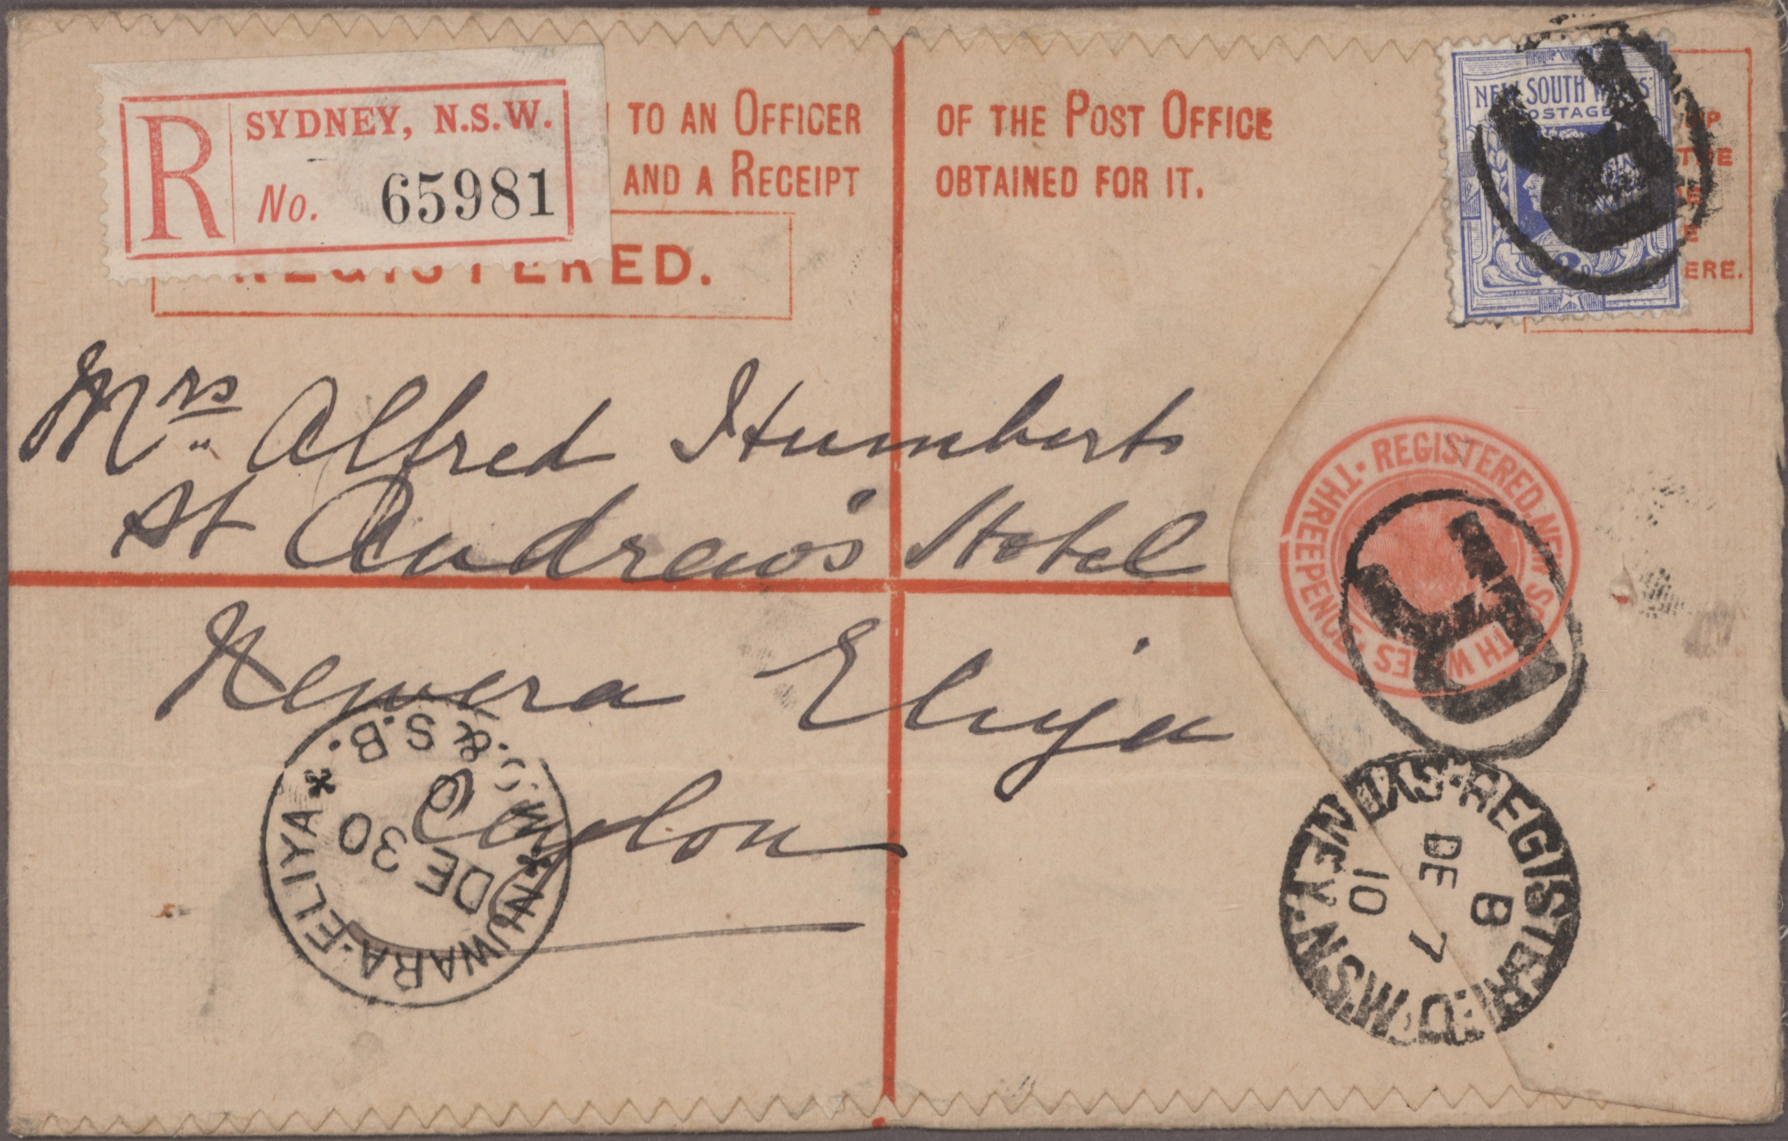 R SYDNEY, N.S.W.
No. 65981
TO AN OFFICER OF THE POST OFFICE
AND A RECEIPT OBTAINED FOR IT.
REGISTERED.
NEW SOUTH WALES
POSTAGE
ERE.
R
Mrs Alfred Humberts
St Andrew's Hotel
Newera Eliya
Ceylon
REGISTERED. NEW SOUTH WALES · THREEPENCE ·
R
REGISTERED SYDNEY. N.S.W.
B
DE 7
10
NUWARA-ELIYA * M.O. & S.B. *
DE 30